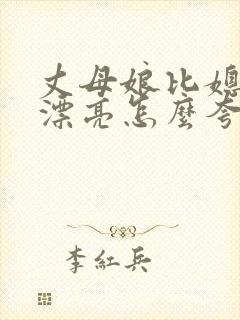 丈母娘比媳
漂亮怎麼夸
李紅兵